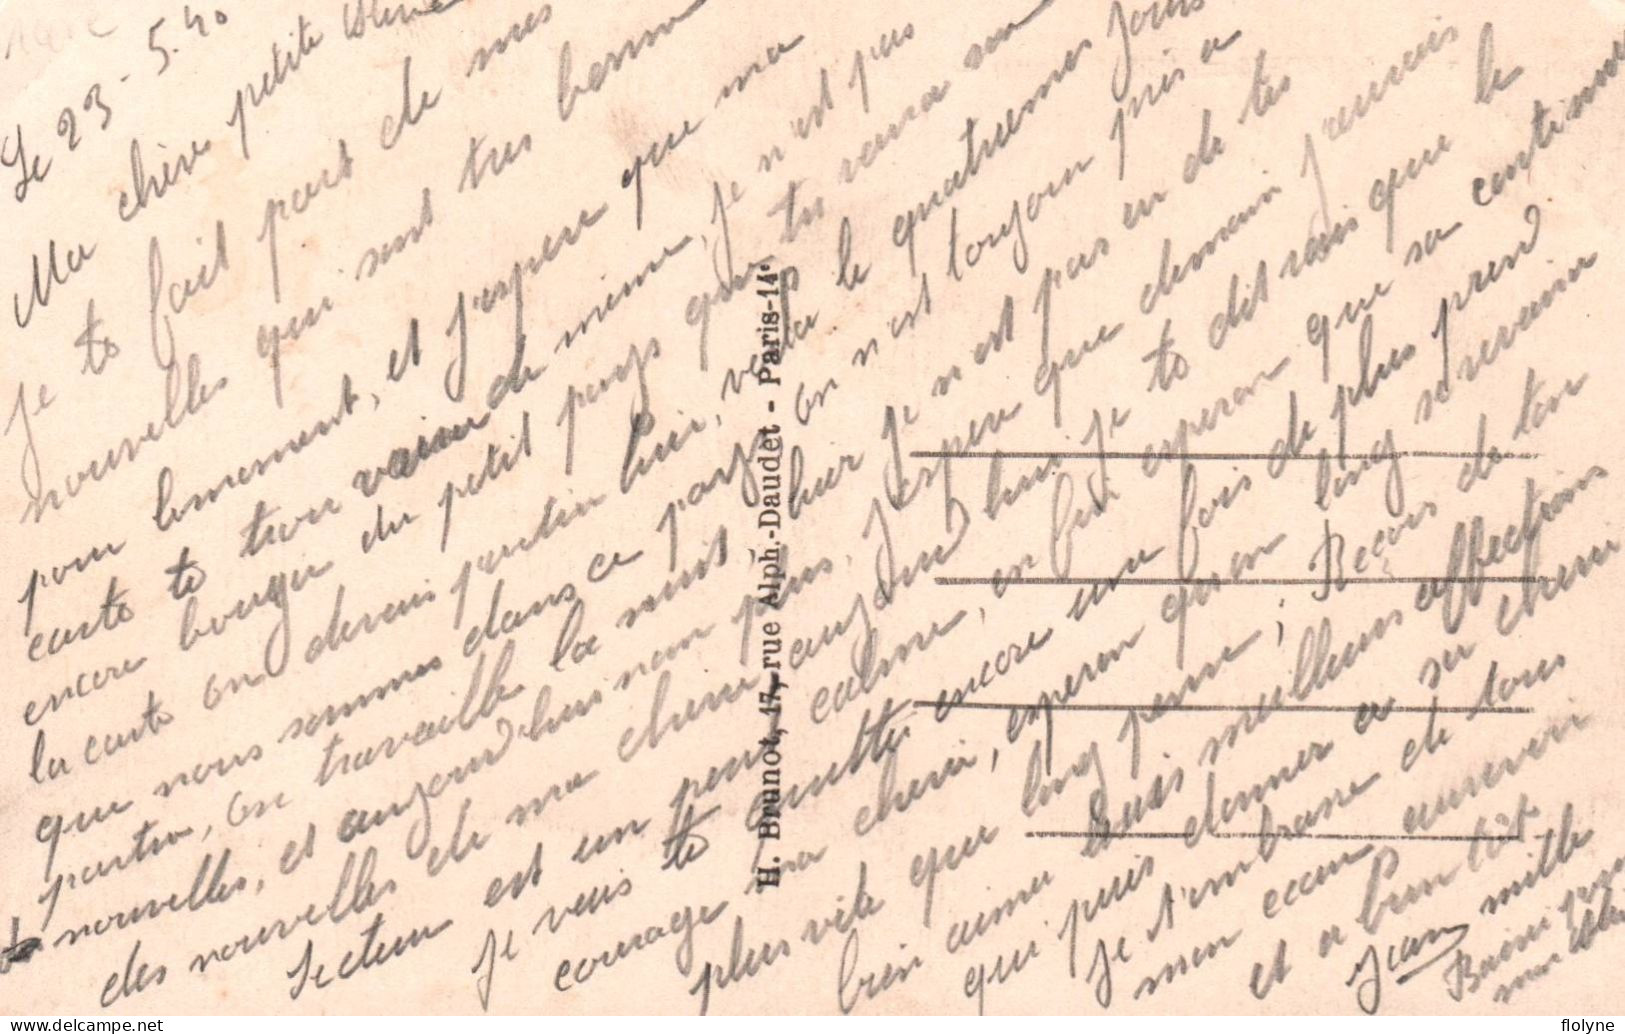 Le 23-5.40
Ma chère petite
Je te fait part de mes
nouvelles qui sont tres bonne
pour lemoment, et j'espere que ma
carte te trouvera de même, Je n'est pas
encore bougu du petit pays que tu verra sur
la carte on devais partir hier, voila le quatriemes jours
que nous sommes dans ce pays on n'est toujour pres a
partir, on travaille la nuit hier je n'est pas eu de tes
nouvelles, et aujourd'hui non plus, J'espere que demain j'aurais
des nouvelles de ma cherie aujourd'hui je te dit vais que le
secteur est un peux calme, on fai esperon que sa continue
Je vais te quitter encore une fois de plus prend
courage ma cherie, esperon qu'on long reverain
plus vite que long pense; Recois de ton
bien aimer deux meilleurs affections
qui puis donner a sa cherie
Je t'embrasse de tous
mon coeur aurevoir
et a bientôt
Jean mille
Baisers pour
H. Brunot, 17, rue Alph.-Daudet - Paris-14e
flolyne